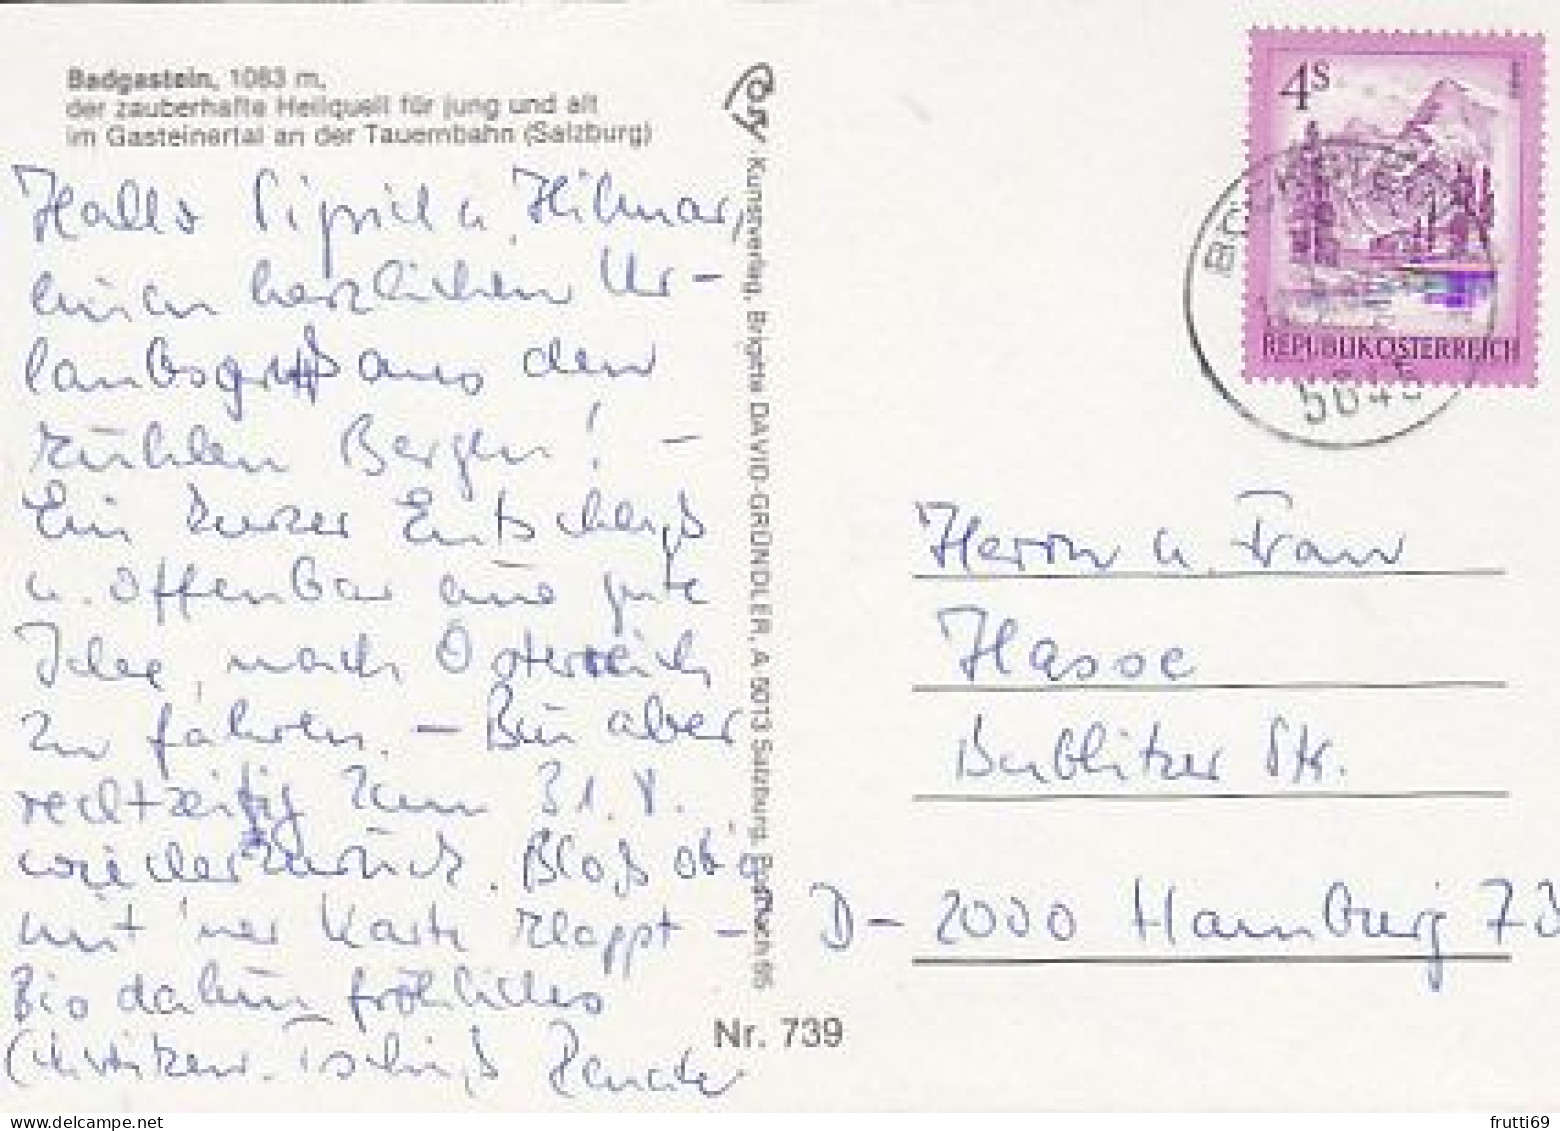 Badgastein, 1083 m,
der zauberhafte Heilquell für jung und alt
im Gasteinertal an der Tauernbahn (Salzburg)
Hallo Sigrid u. Hilmar,
einen herzlichen Ur-
laubsgruß aus den
kühlen Bergen! –
Ein kurzer Entschluß
u. offenbar eine gute
Idee, nach Österreich
zu fahren. – Bin aber
rechtzeitig zum 31. 8.
wieder zurück. Bloß ob's
mit 'ner Karte klappt –
Bis dahin fröhliches
Schwitzen. Tschüß Renate
Kunstverlag, Brigitte DAVID-GRÜNDLER, A 5013 Salzburg, Postfach 55
Nr. 739
4S
REPUBLIK ÖSTERREICH
Herrn u. Frau
Hasse
Bublitzer Str.
D-2000 Hamburg 73
frutti69